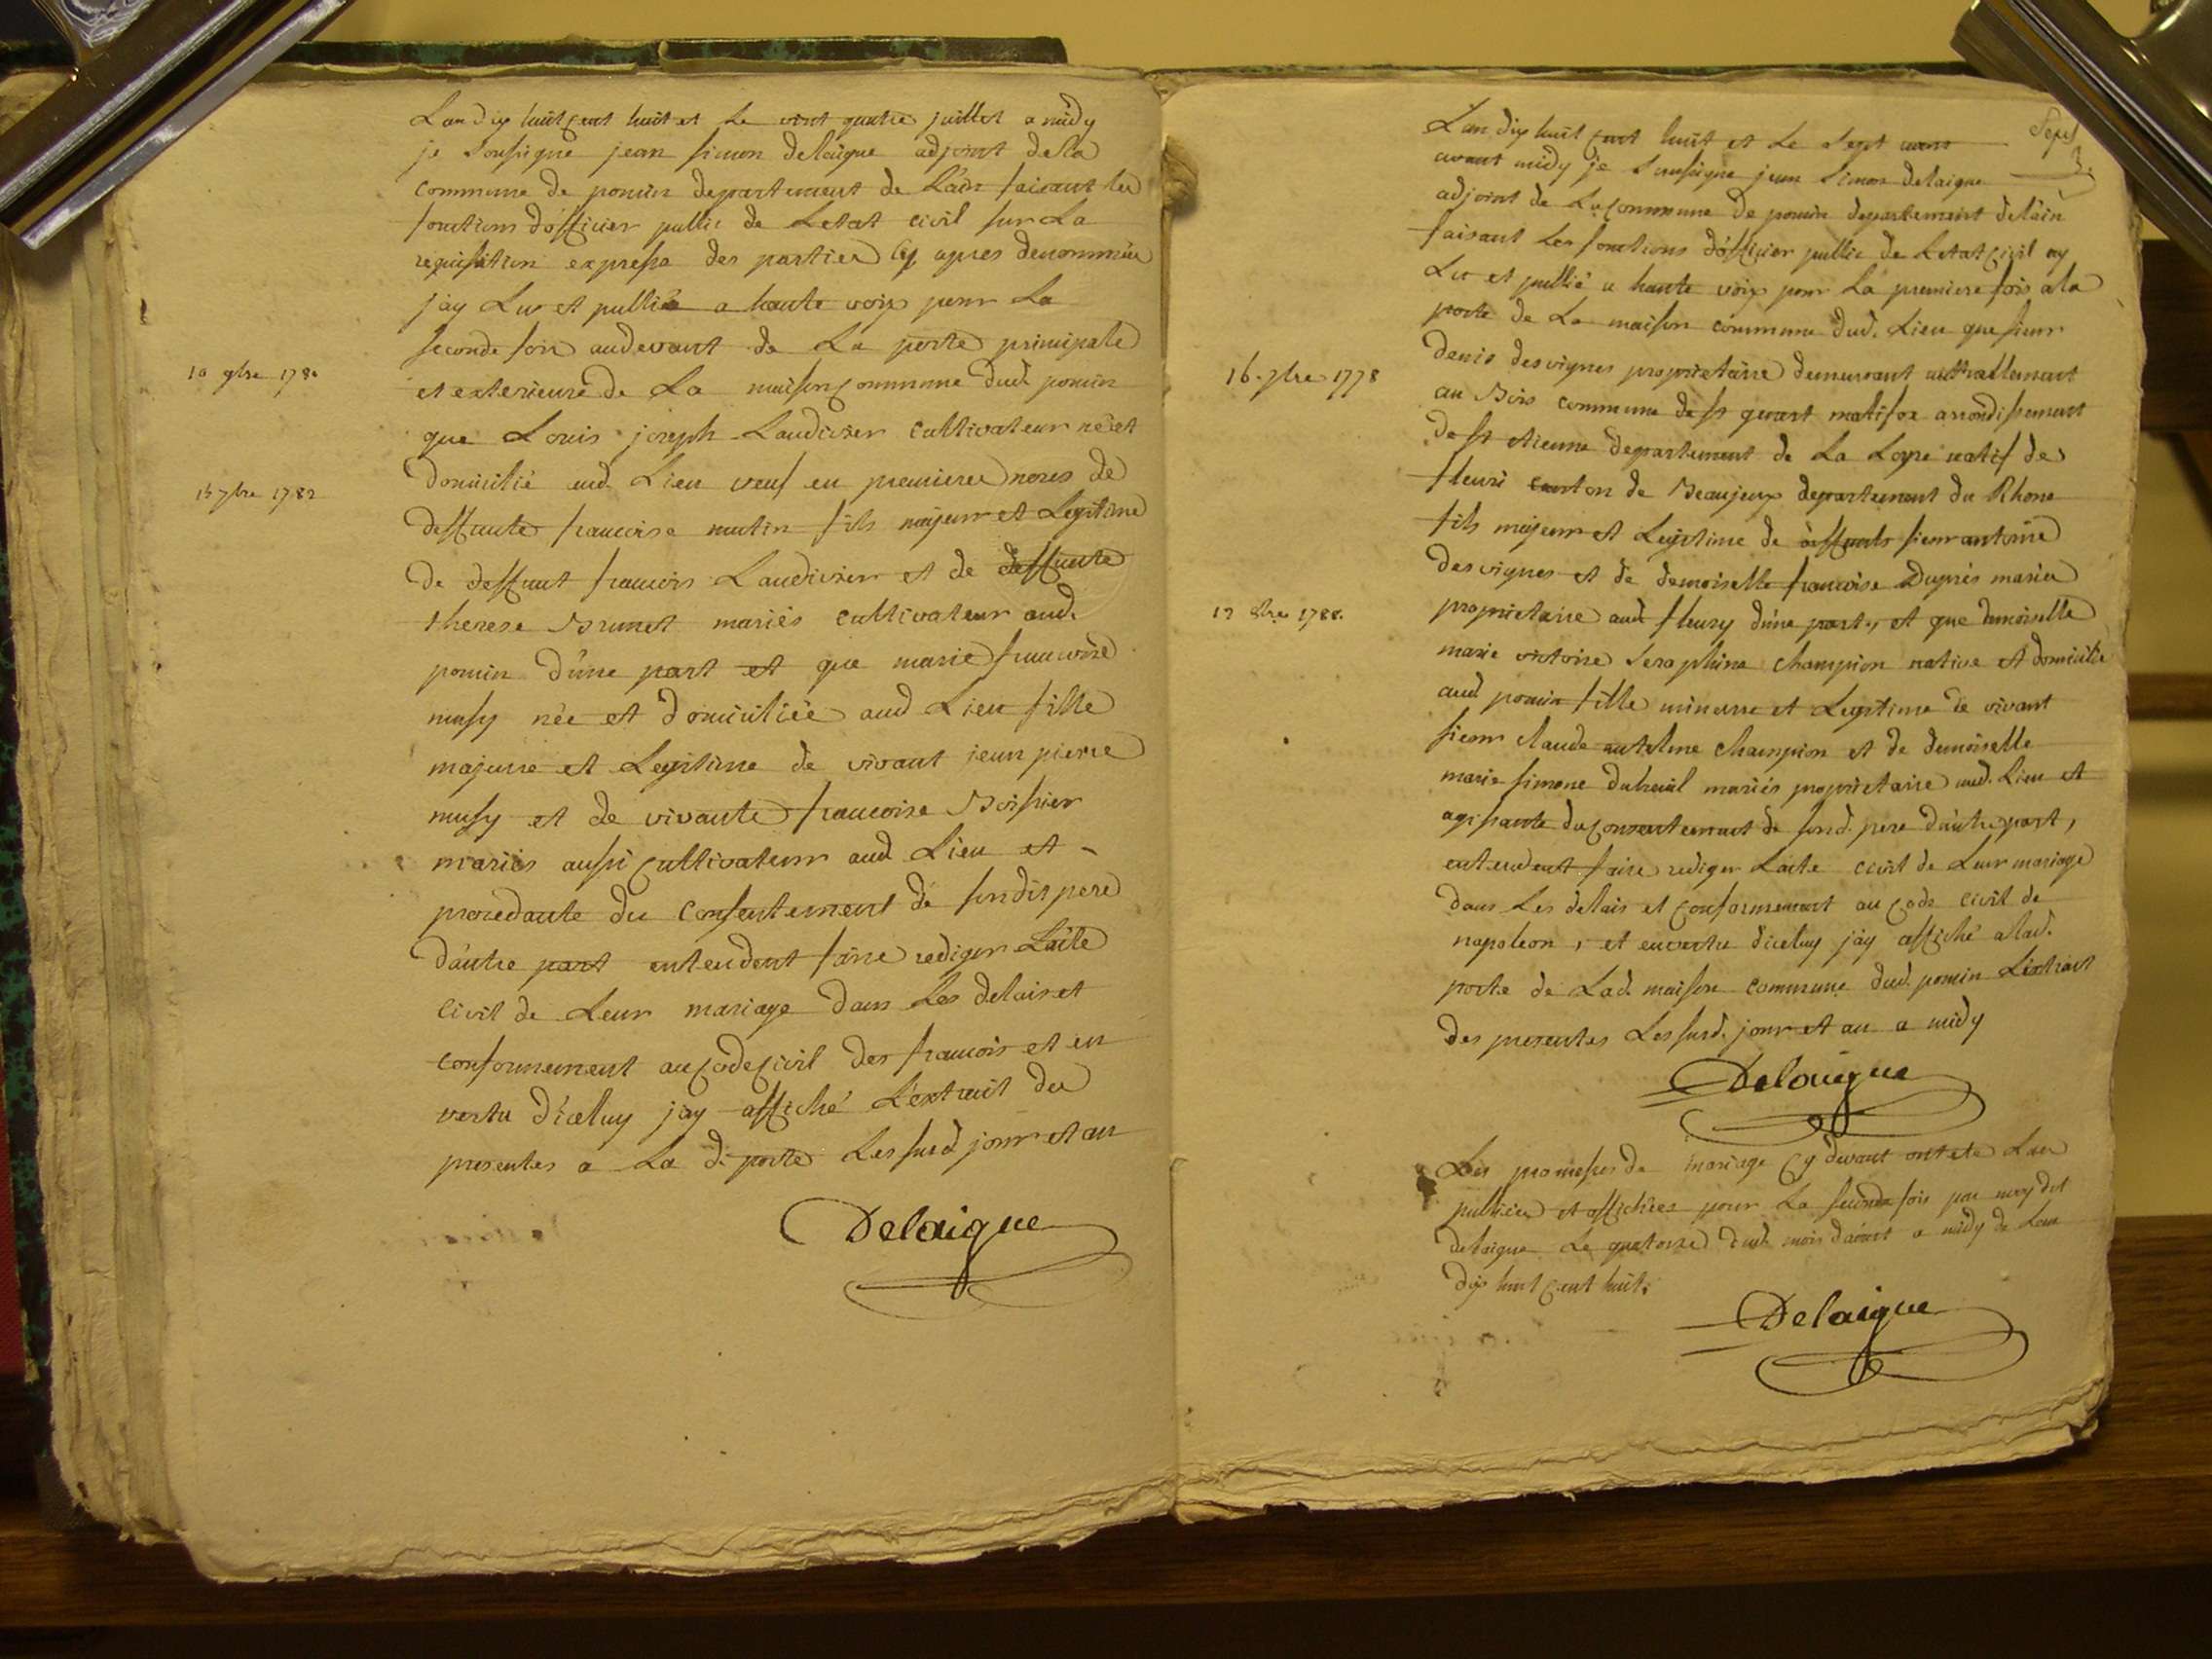 Lan dix huit cent huit et le vint quatre juillet a midy
je soussigné jean simon delaigue adjoint de la
commune de poncin departement de Lain faisant les
fonctions dofficier public de Letat civil sur La
requisition expresse des parties cy apres denommées
jay Lu et publiée a haute voix pour La
seconde fois audevant de La porte principale
et exterieure de La maison commune dud. poncin
10 9bre 1780
que Louis joseph Laudivier cultivateur né et
domicilié aud. Lieu veuf en premieres noces de
15 7bre 1782
deffunte francoise mutin fils majeur et Legitime
de deffunt francois Laudivier et de deffunte
therese Brunet mariés cultivateur aud.
poncin d'une part et que marie francoise
musy née et domiciliée aud Lieu fille
majeure et Legitime de vivant jean pierre
musy et de vivante francoise Boissier
mariés aussi cultivateur aud Lieu et
procedante du consentement de sondit pere
d'autre part entendent faire rediger Lacte
civil de Leur mariage dans Les delais et
conformement au code civil des francois et en
vertu d'iceluy jay affiché L'extrait du
presentes a La d. porte Les susd jour et an
Delaigue
Lan dix huit cent huit et Le sept aout
avant midy je soussigné jean simon delaigue
adjoint de La commune de poncin departement de Lain
faisant Les fonctions d'officier public de Letat civil ay
Lu et publié a haute voix pour La premiere fois a la
porte de La maison commune dud. Lieu que sieur
16. 7bre 1778
denis desvignes proprietaire demeurant actuellement
au Bois commune de st arrondissement
de st etienne departement de La Loire natif de
fleuri canton de Beaujeux departement du Rhone
fils majeur et Legitime de deffunts sieur antoine
desvignes et de demoiselle francoise Dupres mariés
proprietaire aud fleury d'une part, et que demoiselle
13 8bre 1788.
marie victoire seraphine champion native et domiciliée
aud poncin fille mineure et Legitime de vivant
sieur claude antelme champion et de demoiselle
marie simone mariés proprietaire aud. Lieu et
agissante du consentement de sond. pere d'autre part,
entendent faire rediger Lacte civil de Leur mariage
dans Les delais et conformement au code civil de
napoleon, et en vertu diceluy jay affiché a lad.
porte de Lad. maison commune dud. poncin L'extrait
des presentes Les susd. jour et an a midy
Delaigue
Les promesses de mariage cy devant ont eté Lues
publiées et affichées pour La seconde fois par moy dit
delaigue Le quatorze dud. mois daoust a midy de Lan
dix huit cent huit.
Delaigue